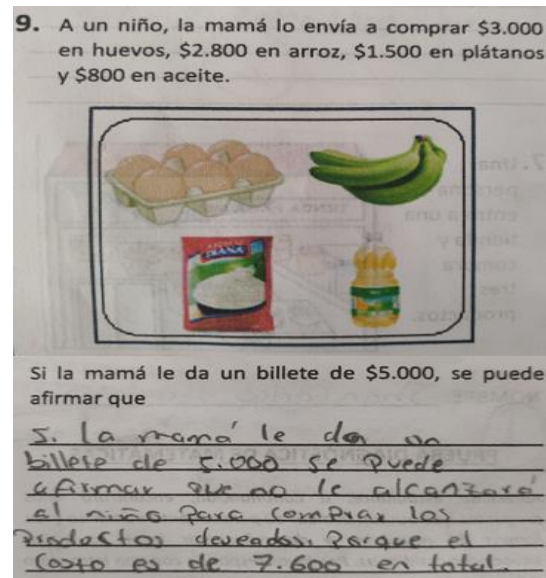 9. A un niño, la mamá lo envía a comprar $3.000
en huevos, $2.800 en arroz, $1.500 en plátanos
y $800 en aceite.
DIANA
Si la mamá le da un billete de $5.000, se puede
afirmar que
Si la mamá le dan un
billete de 5.000 se puede
afirmar que no le alcanzará
al niño para comprar los
productos deseados. Porque el
costo es de 7.600 en total.